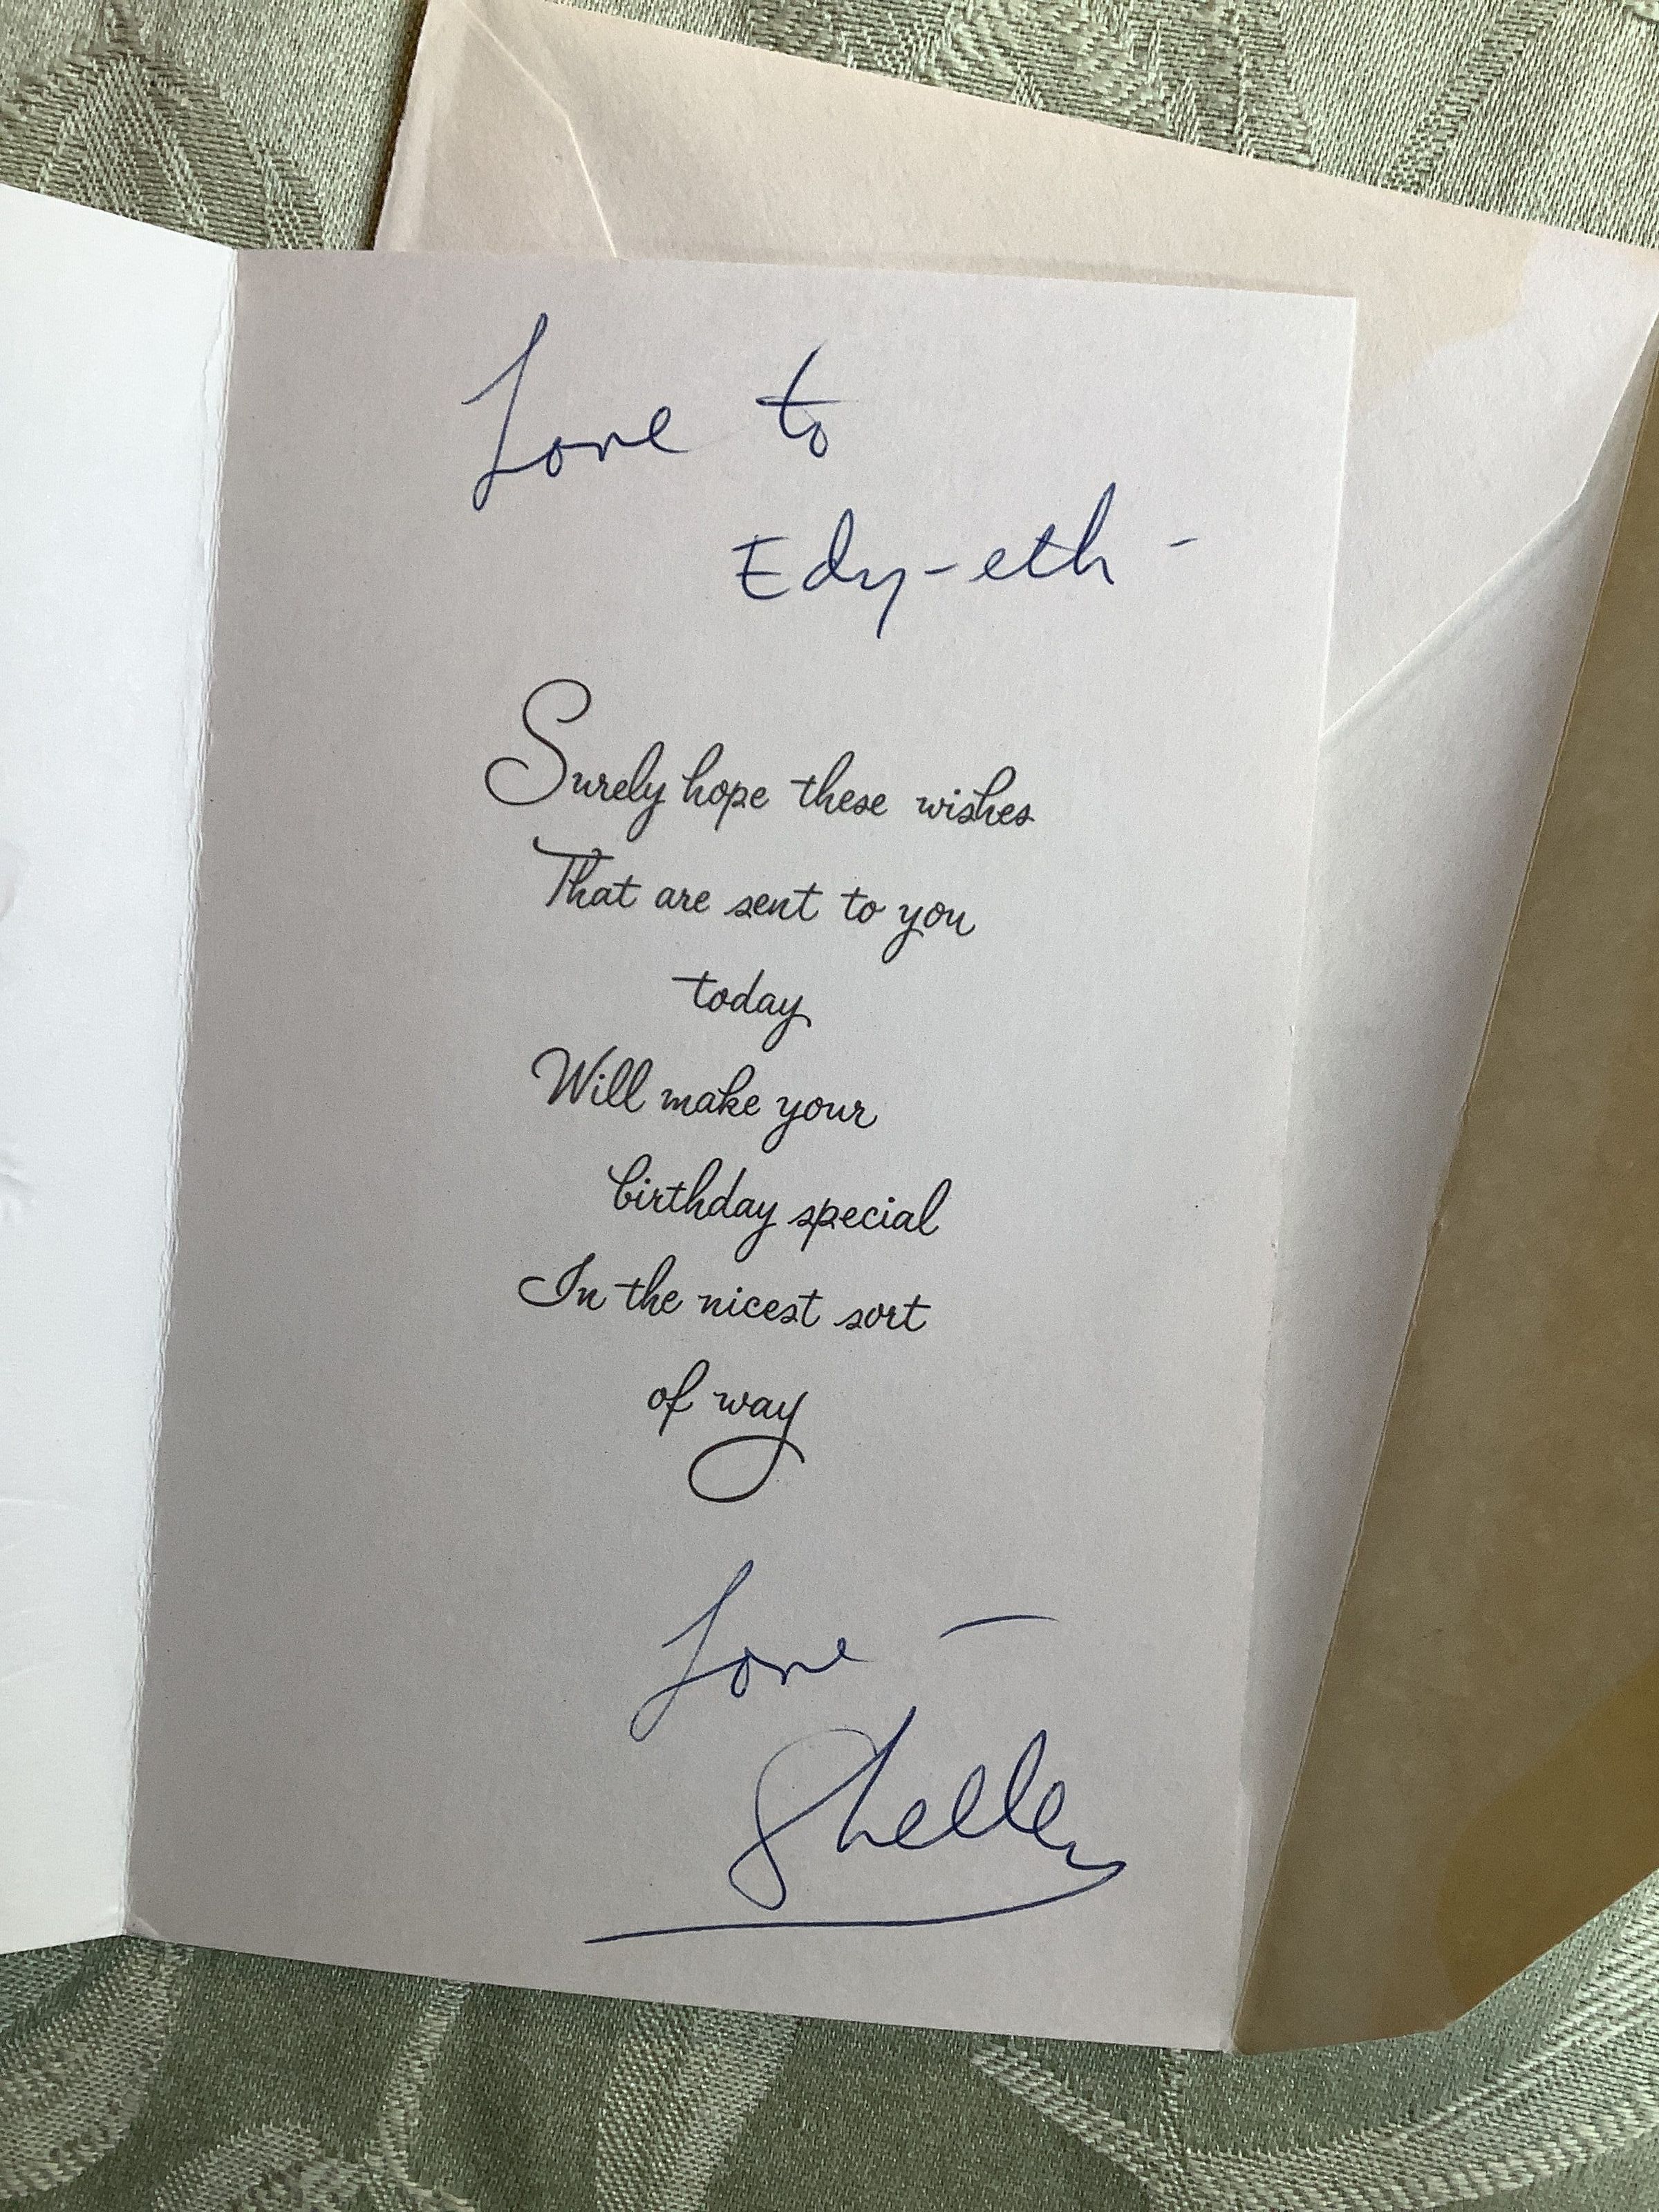 Love to
Edy-eth -
Surely hope these wishes
That are sent to you
today
Will make your
birthday special
In the nicest sort
of way
Love —
Shelley